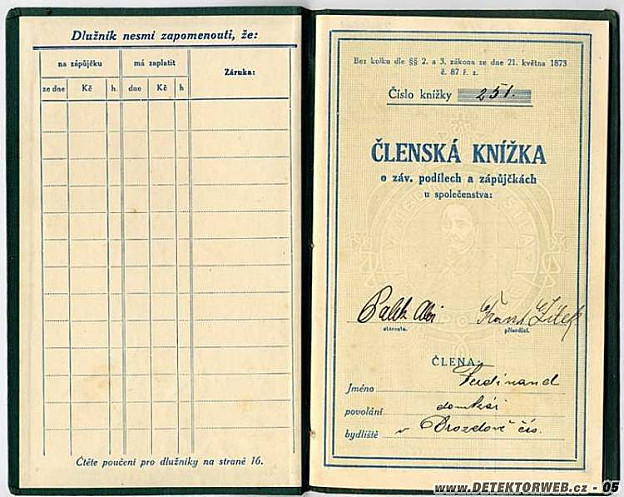 Dlužník nesmí zapomenouti, že:
na zápůjčku má zaplatit Záruka:
ze dne Kč h dne Kč h
Čtěte poučení pro dlužníky na straně 16.
Bez kolku dle §§ 2. a 3. zákona ze dne 21. května 1873
č. 87 ř. z.
Číslo knížky 251.
ČLENSKÁ KNÍŽKA
o záv. podílech a zápůjčkách
u společenstva:
starosta. přísedící.
ČLENA:
Jméno Ferdinand
povolání domkář
bydliště v Drozdově čís.
www.DETEKTORWEB.cz - 05